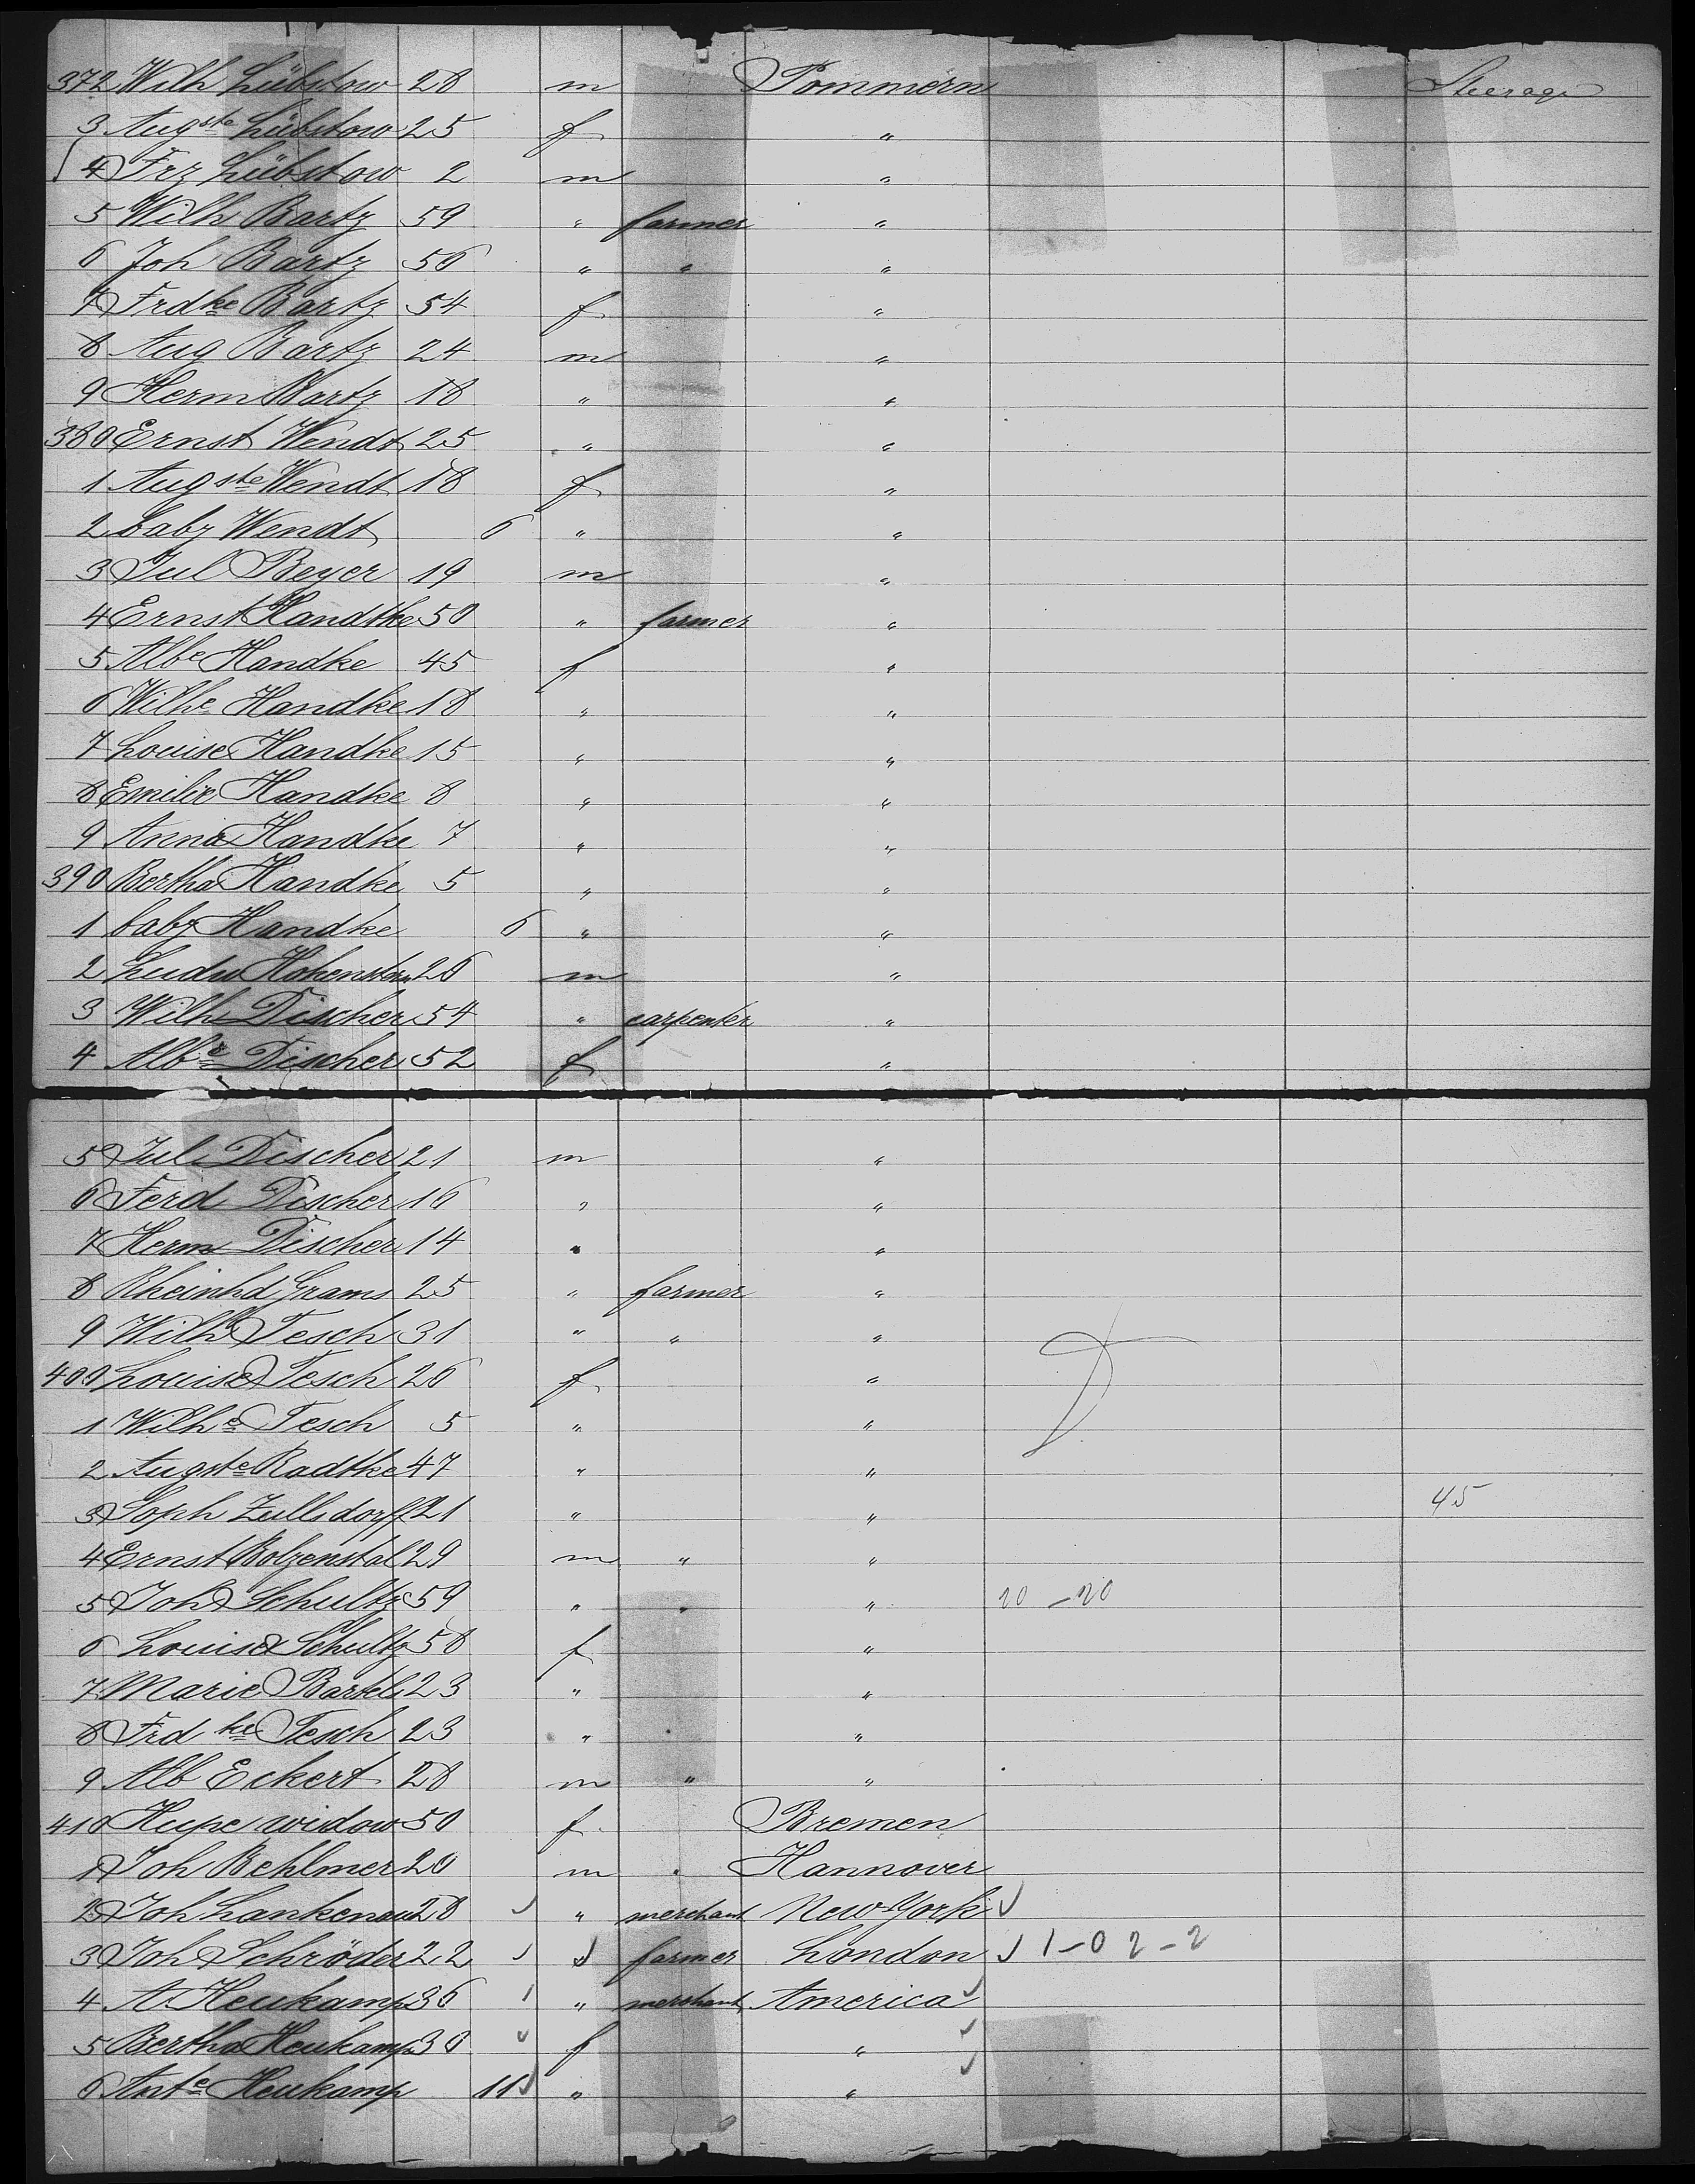 372 Wilh Lübstow 28 m Pommern Steerage
3 Augste Lübstow 25 f "
4 Frz Lübstow 2 m "
5 Wilh Bartz 59 " farmer "
6 Joh Bartz 56 " " "
7 Frdke Bartz 54 f "
8 Aug Bartz 24 m "
9 Herm Bartz 18 " "
380 Ernst Wendt 25 " "
1 Augste Wendt 18 f "
2 baby Wendt 6 " "
3 Jul Beyer 19 m "
4 Ernst Handtke 50 " farmer "
5 Albe Handke 45 f "
6 Wilhe Handke 18 " "
7 Louise Handke 15 " "
8 Emilie Handke 8 " "
9 Anna Handke 7 " "
390 Bertha Handke 5 " "
1 baby Handke 6 " "
2 Ludw Hohenstein 26 m "
3 Wilh Discher 54 " carpenter "
4 Albe Discher 52 f "
5 Jul Discher 21 m "
6 Ferd Discher 16 " "
7 Herm Discher 14 " "
8 Rheinhd Grams 25 " farmer "
9 Wilh Tesch 31 " " "
400 Louise Tesch 26 f "
1 Wilhe Tesch 5 " "
2 Augste Radtke 47 " "
3 Soph Zullsdorff 21 " " 45
4 Ernst Bolzenstal 29 m " "
5 Joh Schultz 59 " " " 20 - 20
6 Louise Schultz 58 f "
7 Marie Bartels 23 " "
8 Frdke Tesch 23 " "
9 Alb Eckert 28 m " "
410 Hupe widow 50 f Bremen
1 Joh Behlmer 20 m " Hannover
2 Joh Lankenau 28 " merchant New-York
3 Joh Schröder 22 " farmer London 1-0 2-2
4 A Heukamp 36 " merchant America
5 Bertha Heukamp 30 f "
6 Ante Heukamp 11 " "